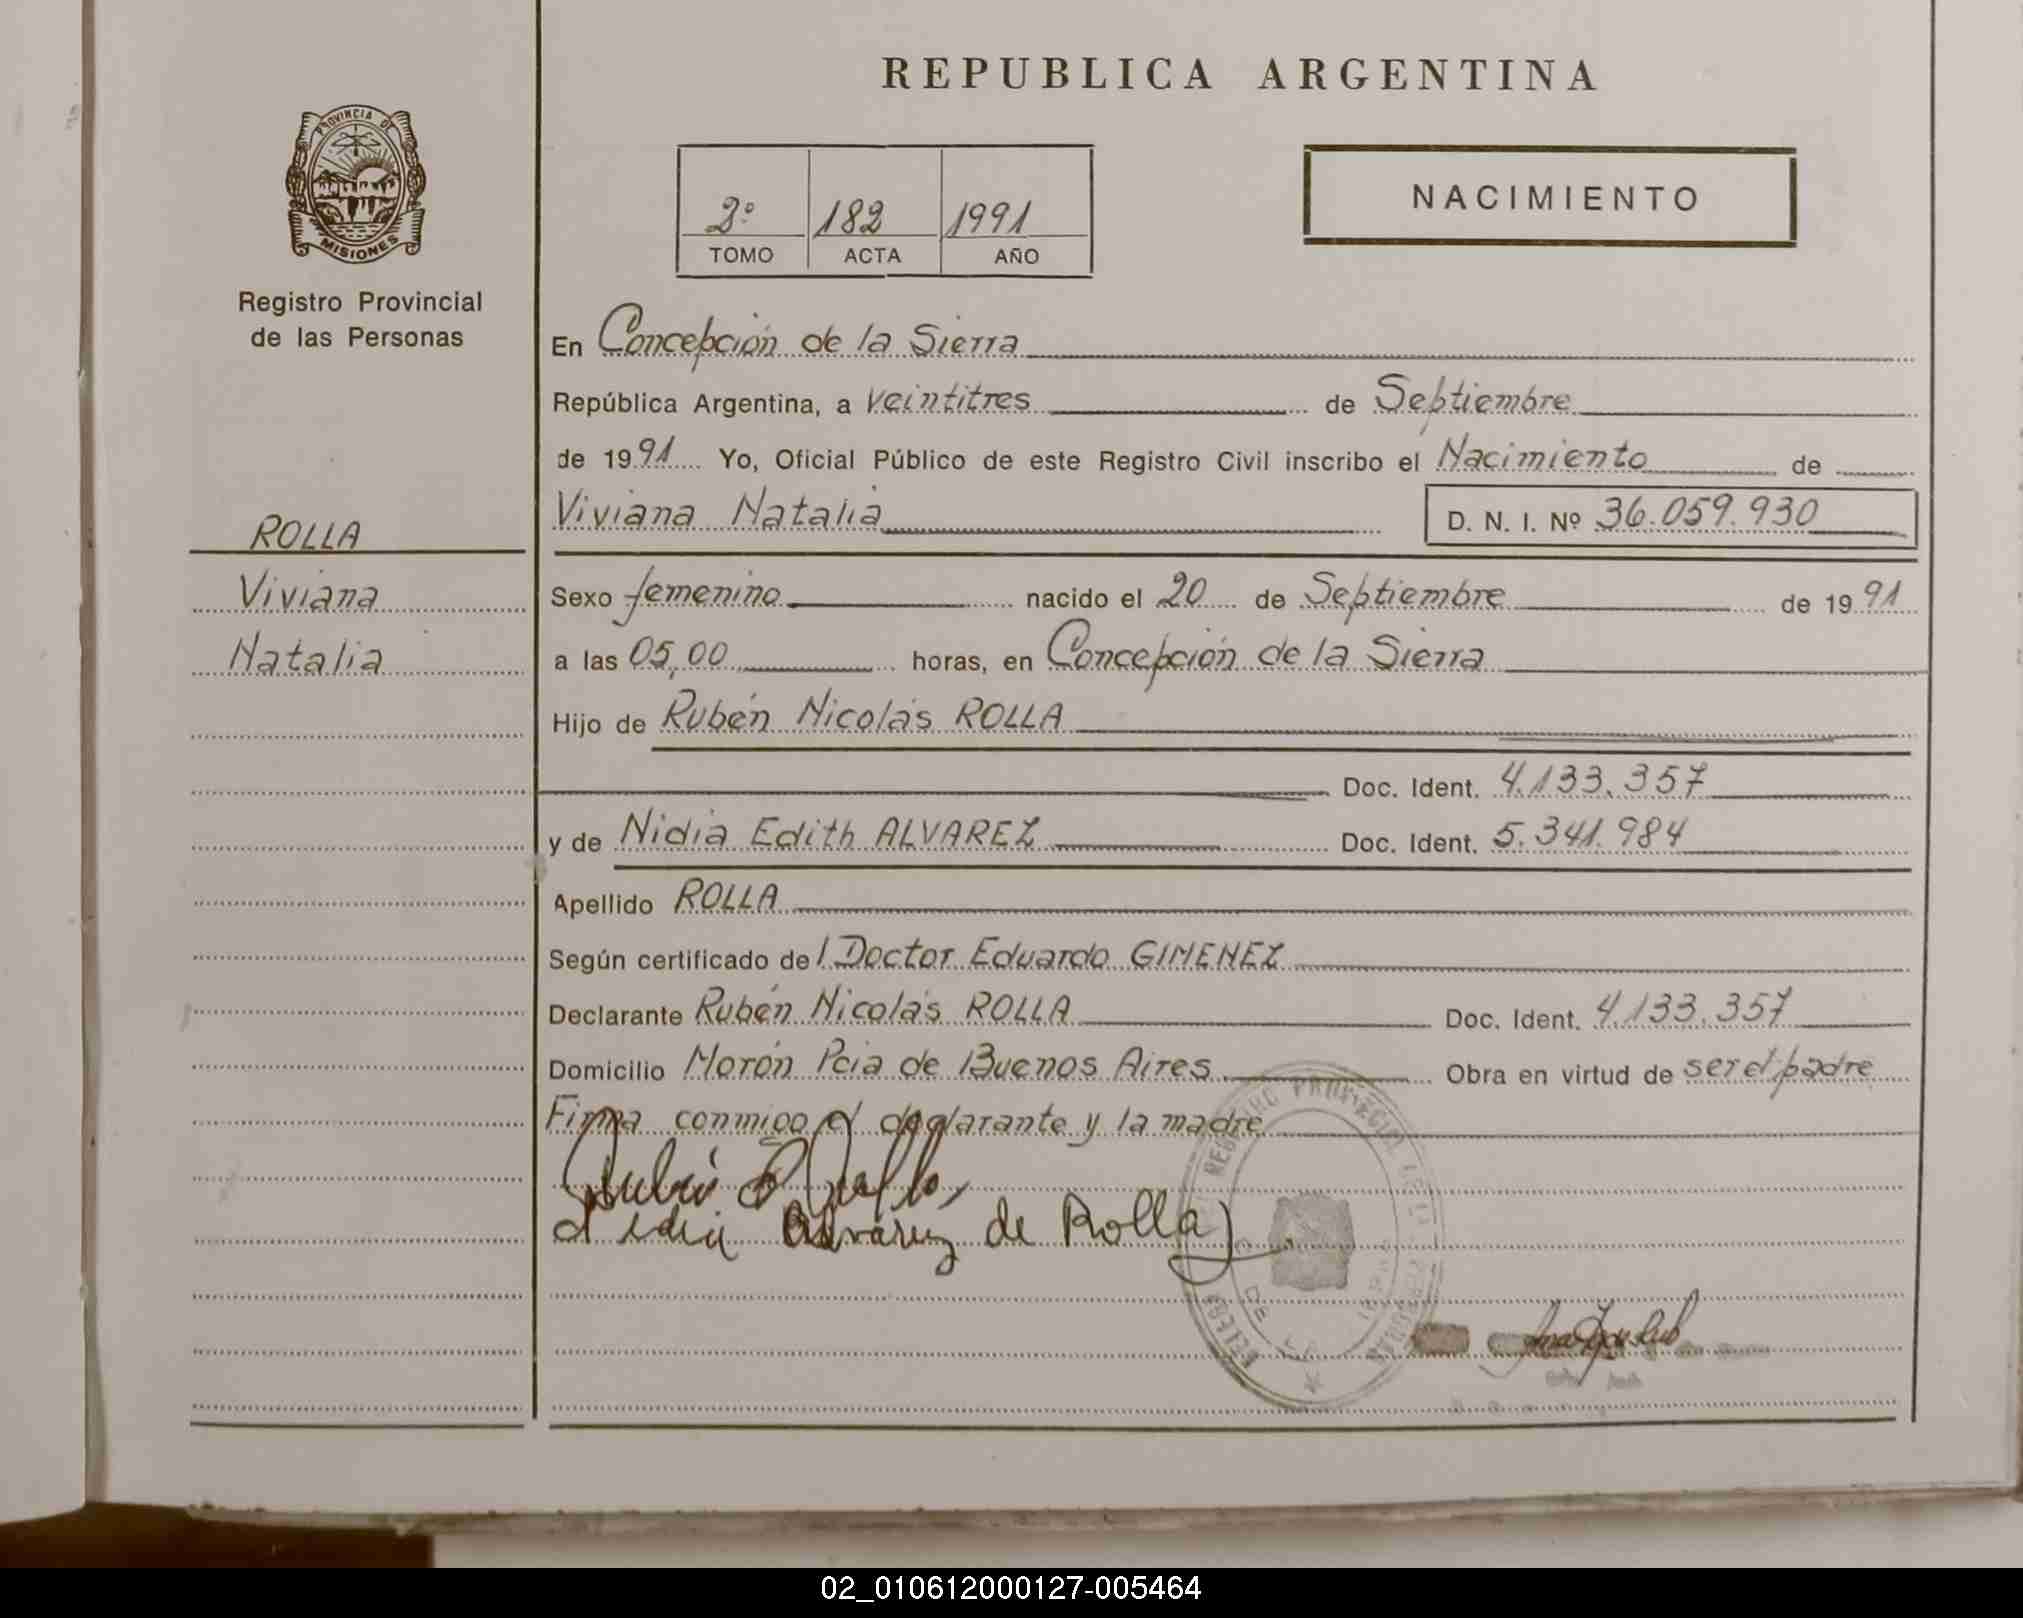 REPUBLICA ARGENTINA
PROVINCIA DE
MISIONES
Registro Provincial
de las Personas
2º 182 1991
TOMO ACTA AÑO
NACIMIENTO
En Concepción de la Sierra
República Argentina, a veintitres de Septiembre
de 1991 Yo, Oficial Público de este Registro Civil inscribo el Nacimiento de
Viviana Natalia D. N. I. Nº 36.059.930
ROLLA
Viviana
Natalia
Sexo femenino nacido el 20 de Septiembre de 1991
a las 05,00 horas, en Concepción de la Sierra
Hijo de Rubén Nicolás ROLLA
Doc. Ident. 4.133.357
y de Nidia Edith ALVAREZ Doc. Ident. 5.341.984
Apellido ROLLA
Según certificado del Doctor Eduardo GIMENEZ
Declarante Rubén Nicolás ROLLA Doc. Ident. 4.133.357
Domicilio Morón Pcia de Buenos Aires Obra en virtud de ser el padre
Firma conmigo el declarante y la madre
Alvárez de Rolla
02_010612000127-005464